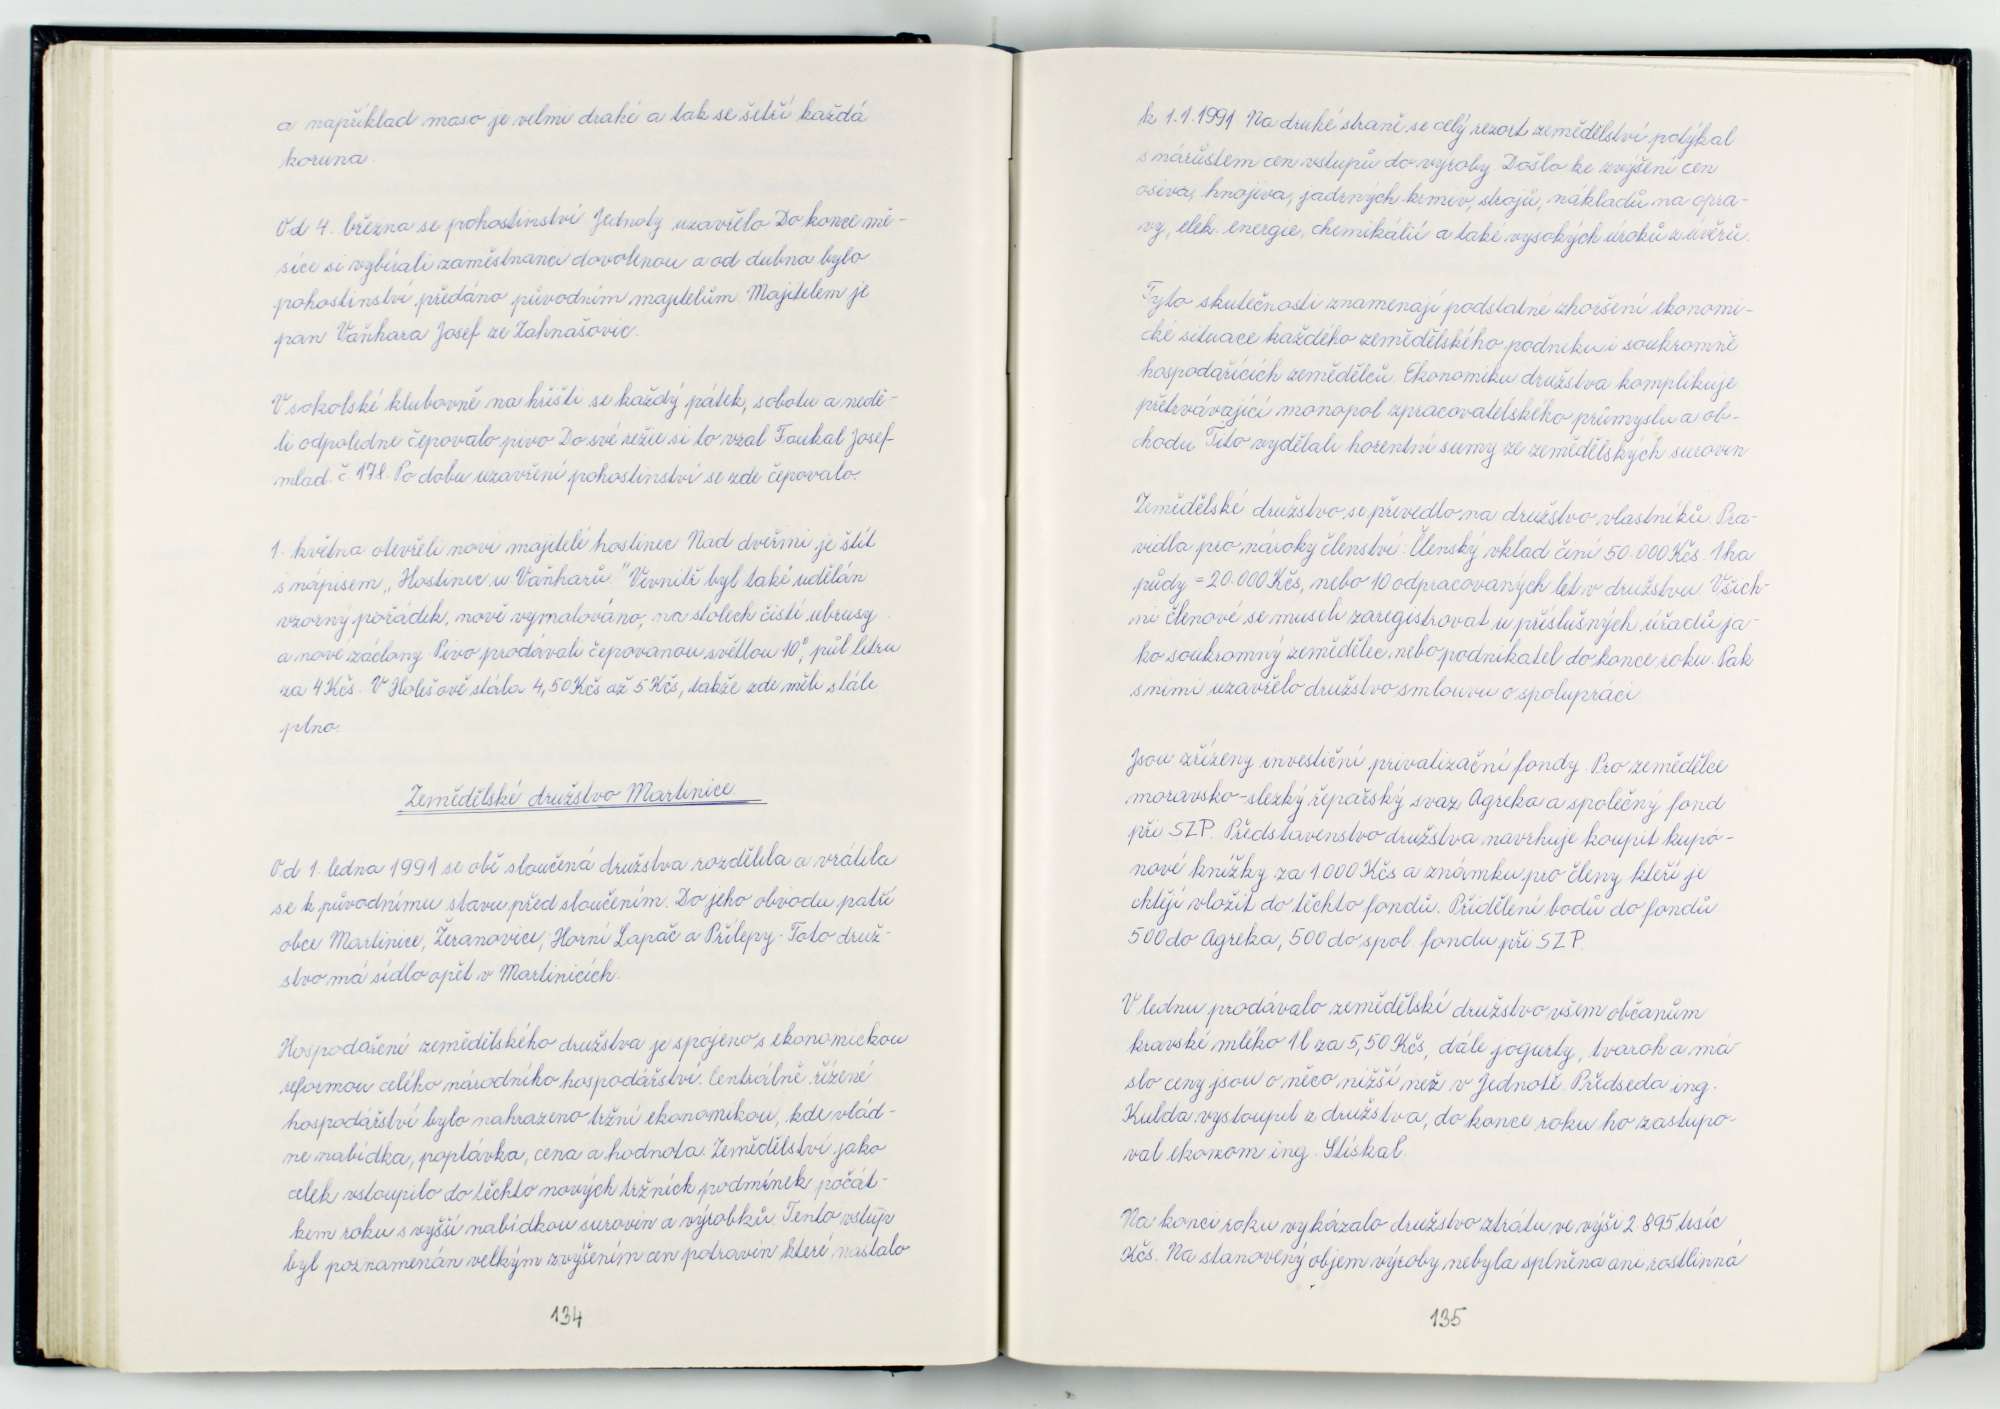 a například maso je velmi drahé a tak se šetří každá
koruna.
Od 4. března se pohostinství Jednoty uzavřelo Do konce mě-
síce si vybírali zaměstnanci dovolenou a od dubna bylo
pohostinství předáno původním majitelům Majitelem je
pan Vaňhara Josef ze Zahnašovic.
V sokolské klubovně na hřišti se každý pátek, sobotu a nedě-
li odpoledne čepovalo pivo Do své režie si to vzal Foukal Josef
mlad. č. 178. Po dobu uzavření pohostinství se zde čepovalo.
1. května otevřeli noví majitelé hostinec Nad dveřmi je štít
s nápisem „Hostinec u Vaňharů." Vevnitř byl také udělán
vzorný pořádek, nově vymalováno, na stolech čisté ubrusy
a nové záclony. Pivo prodávali čepovanou světlou 10°, půl litru
za 4 Kčs. V Holešově stála 4,50 Kčs až 5 Kčs, takže zde měli stále
plno.
Zemědělské družstvo Martinice
Od 1. ledna 1991 se obě sloučená družstva rozdělila a vrátila
se k původnímu stavu před sloučením. Do jeho obvodu patří
obce Martinice, Žeranovice, Horní Lapač a Přílepy. Toto druž-
stvo má sídlo opět v Martinicích.
Hospodaření zemědělského družstva je spojeno s ekonomickou
reformou celého národního hospodářství. Centrálně řízené
hospodářství bylo nahrazeno tržní ekonomikou, kde vlád-
ne nabídka, poptávka, cena a hodnota. Zemědělství jako
celek vstoupilo do těchto nových tržních podmínek počát-
kem roku s vyšší nabídkou surovin a výrobků. Tento vstup
byl poznamenán velkým zvýšením cen potravin které nastalo
134
k 1.1.1991 Na druhé straně se celý rezort zemědělství potýkal
s nárůstem cen vstupů do výroby Došlo ke zvýšení cen
osiva, hnojiva, jadrných krmiv, strojů, nákladů na opra-
vy, elek. energie, chemikálií a také vysokých úroků z úvěrů.
Tyto skutečnosti znamenají podstatné zhoršení ekonomi-
cké situace každého zemědělského podniku i soukromně
hospodařících zemědělců. Ekonomiku družstva komplikuje
přetrvávající monopol zpracovatelského průmyslu a ob-
chodu Tito vydělali horentní sumy ze zemědělských surovin
Zemědělské družstvo se převedlo na družstvo vlastníků. Pra-
vidla pro nároky členství: Členský vklad činí 50.000 Kčs. 1 ha
půdy = 20.000 Kčs, nebo 10 odpracovaných let v družstvu. Všich-
ni členové se museli zaregistrovat u příslušných úřadů ja-
ko soukromný zemědělec nebo podnikatel do konce roku. Pak
s nimi uzavřelo družstvo smlouvu o spolupráci.
Jsou zřízeny investiční privatizační fondy. Pro zemědělce
moravsko-slezký řepařský svaz Agreka a společný fond
při SZP. Představenstvo družstva navrhuje koupit kupó-
nové knížky za 1.000 Kčs a známku pro členy kteří je
chtějí vložit do těchto fondů. Přidělení bodů do fondů
500 do Agreka, 500 do spol. fondu při SZP.
V lednu prodávalo zemědělské družstvo všem občanům
kravské mléko 1l za 5,50 Kčs, dále jogurty, tvaroh a má-
slo ceny jsou o něco nižší než v Jednotě. Předseda ing.
Kulda vystoupil z družstva, do konce roku ho zastupo-
val ekonom ing. Stískal.
Na konci roku vykázalo družstvo ztrátu ve výši 2 895 tisíc
Kčs. Na stanovený objem výroby nebyla splněna ani rostlinná
135